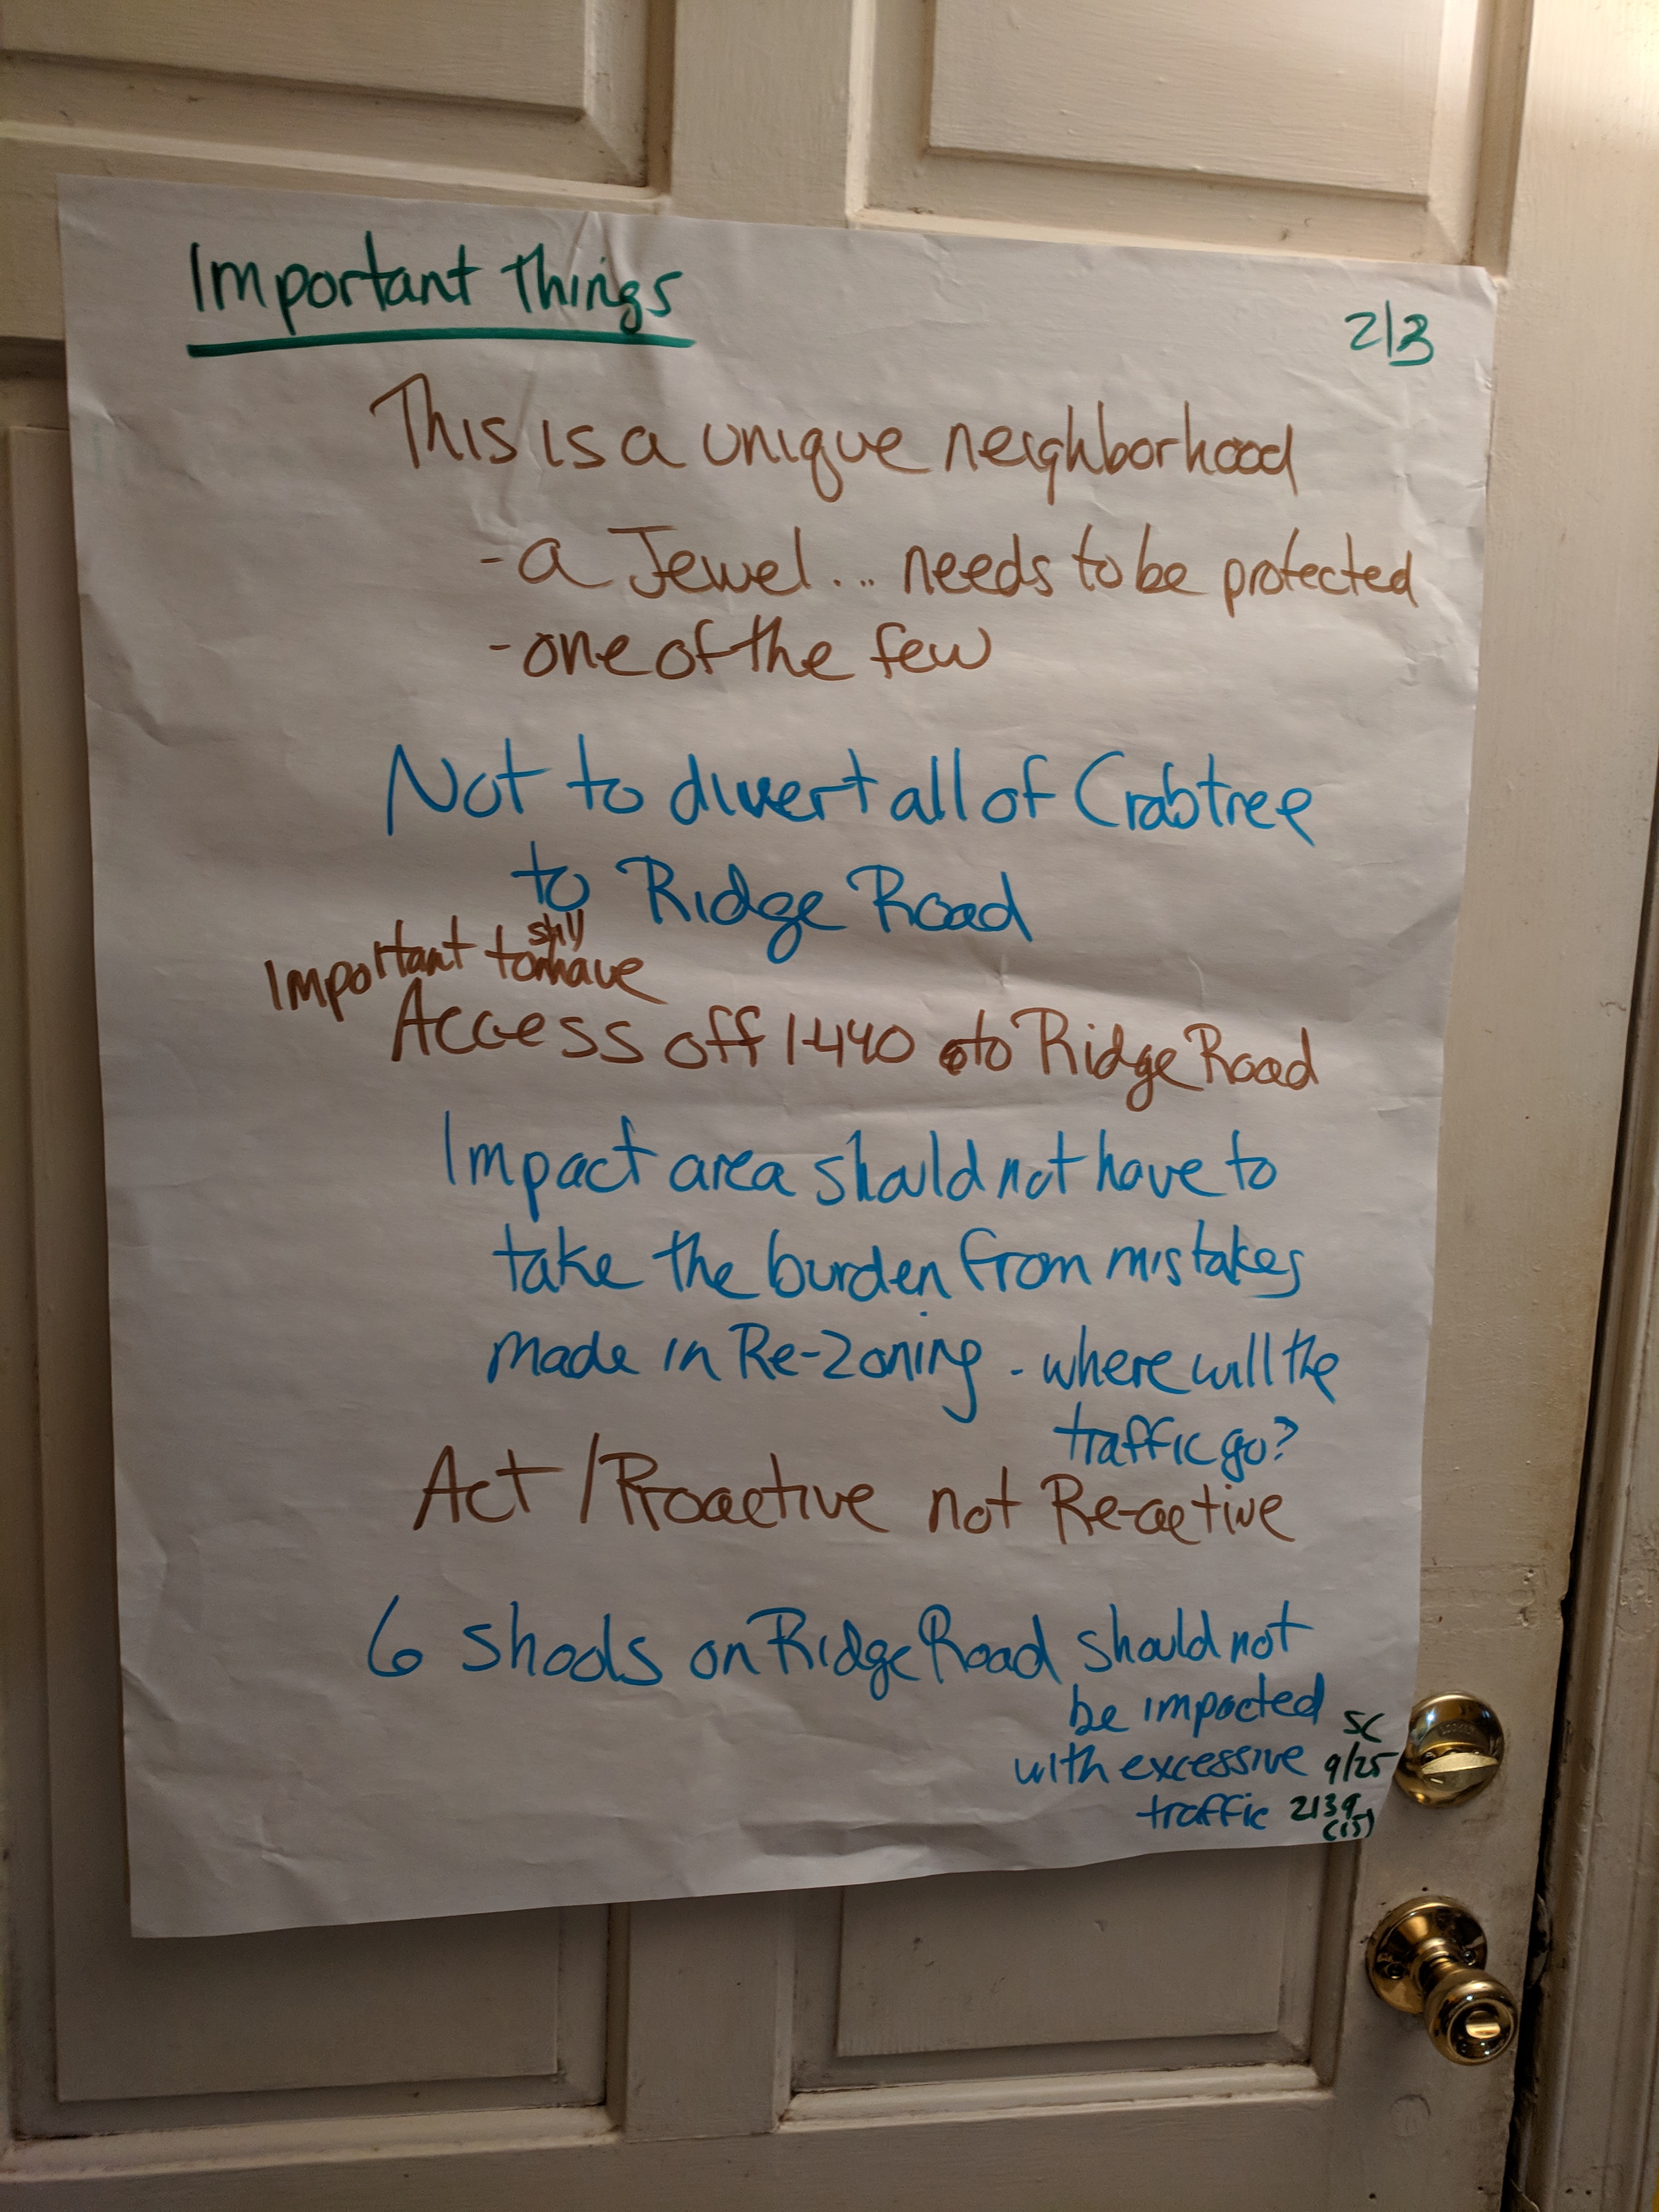 Important Things
2/3
This is a unique neighborhood
- a Jewel... needs to be protected
- one of the few
Not to divert all of Crabtree
to Ridge Road
Important to still have
Access off I-440 to Ridge Road
Impact area should not have to
take the burden from mistakes
made in Re-Zoning - where will the
traffic go?
Act / Proactive not Re-active
6 shools on Ridge Road should not
be impacted
with excessive
traffic
SC
9/25
2139
(15)